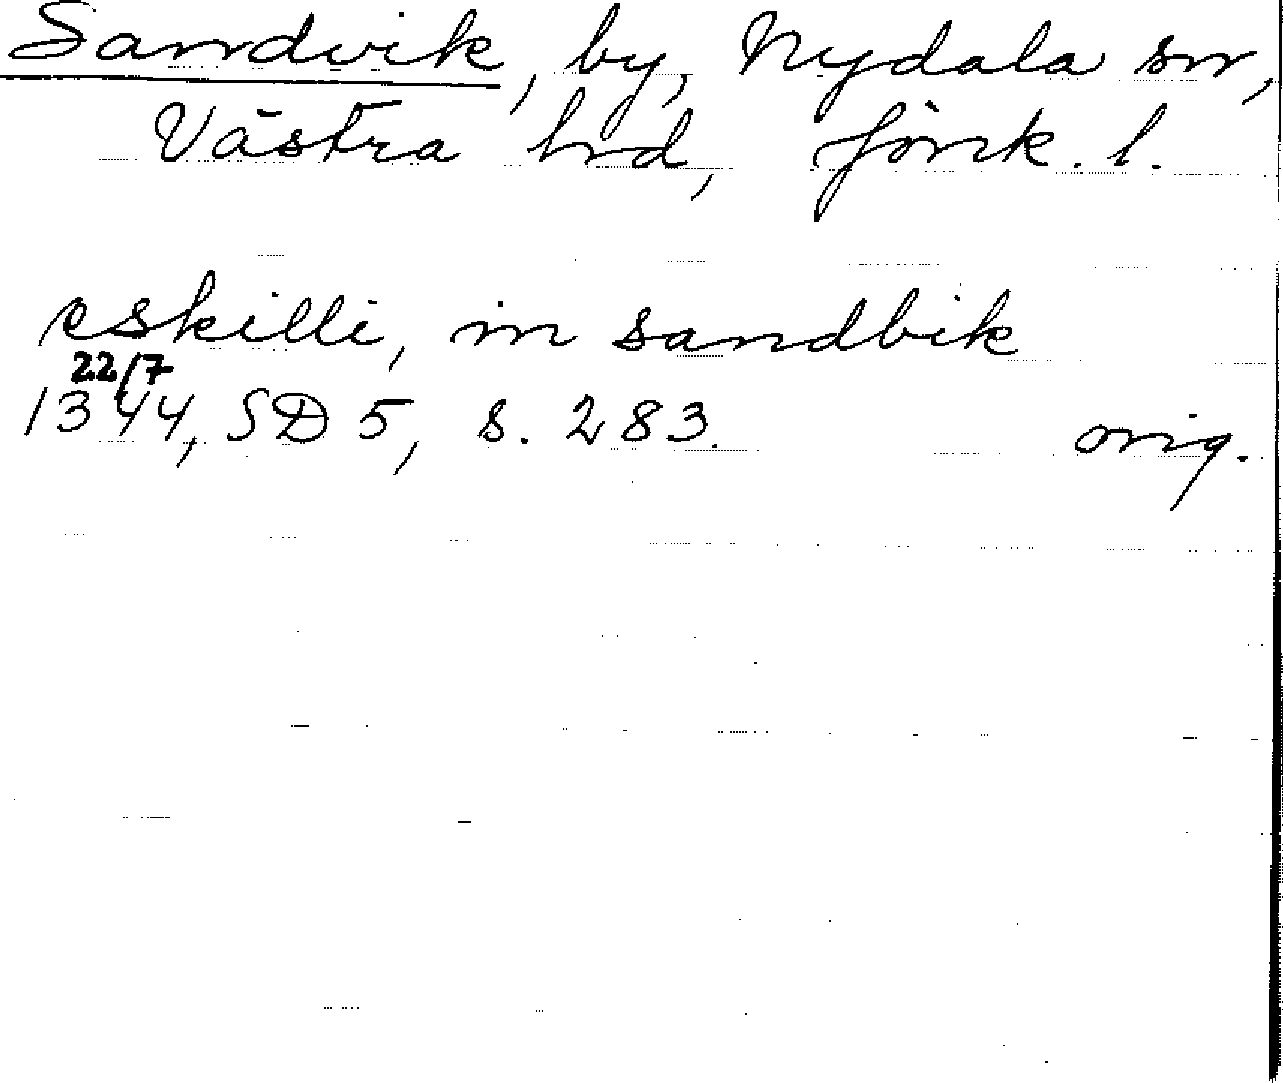 Sandvik, by, Nydala sn,
Västra hrd, Jönk. l.
eskilli, in sandbik
22/7
1344, SD 5, s. 283. orig.